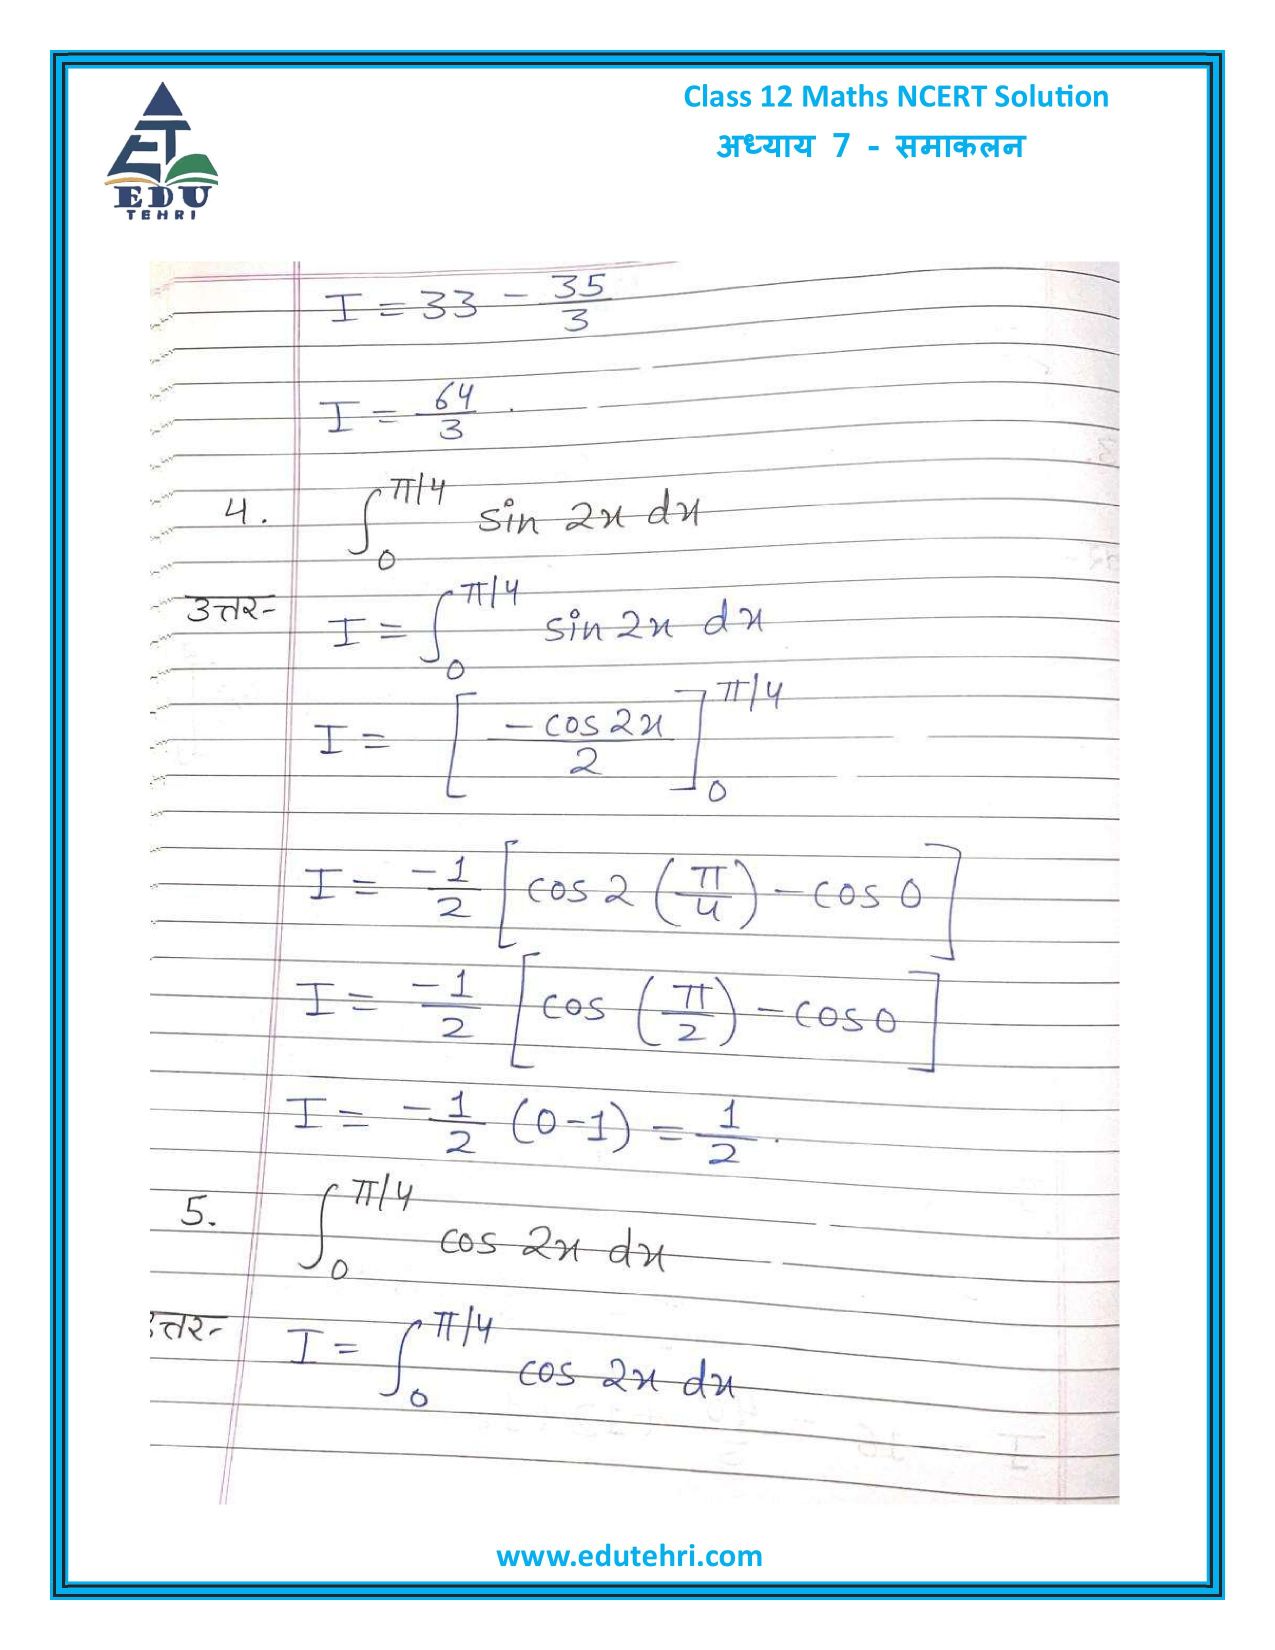 Class 12 Maths NCERT Solution
अध्याय 7 - समाकलन
EDU
TEHRI
I = 33 - 35/3
I = 64/3 .
4. ∫₀^π/4 sin 2x dx
उत्तर- I = ∫₀^π/4 sin 2x dx
I = [ -cos 2x / 2 ]₀^π/4
I = -1/2 [ cos 2 (π/4) - cos 0 ]
I = -1/2 [ cos (π/2) - cos 0 ]
I = -1/2 (0-1) = 1/2 .
5. ∫₀^π/4 cos 2x dx
उत्तर- I = ∫₀^π/4 cos 2x dx
www.edutehri.com